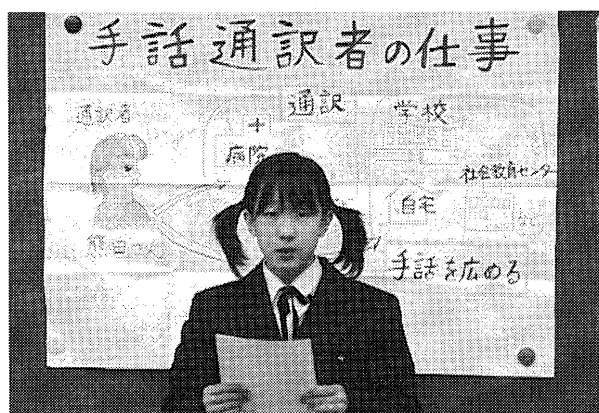 手話通訳者の仕事
通訳者
通訳
病院
学校
社会教育センター
自宅
手話を広める